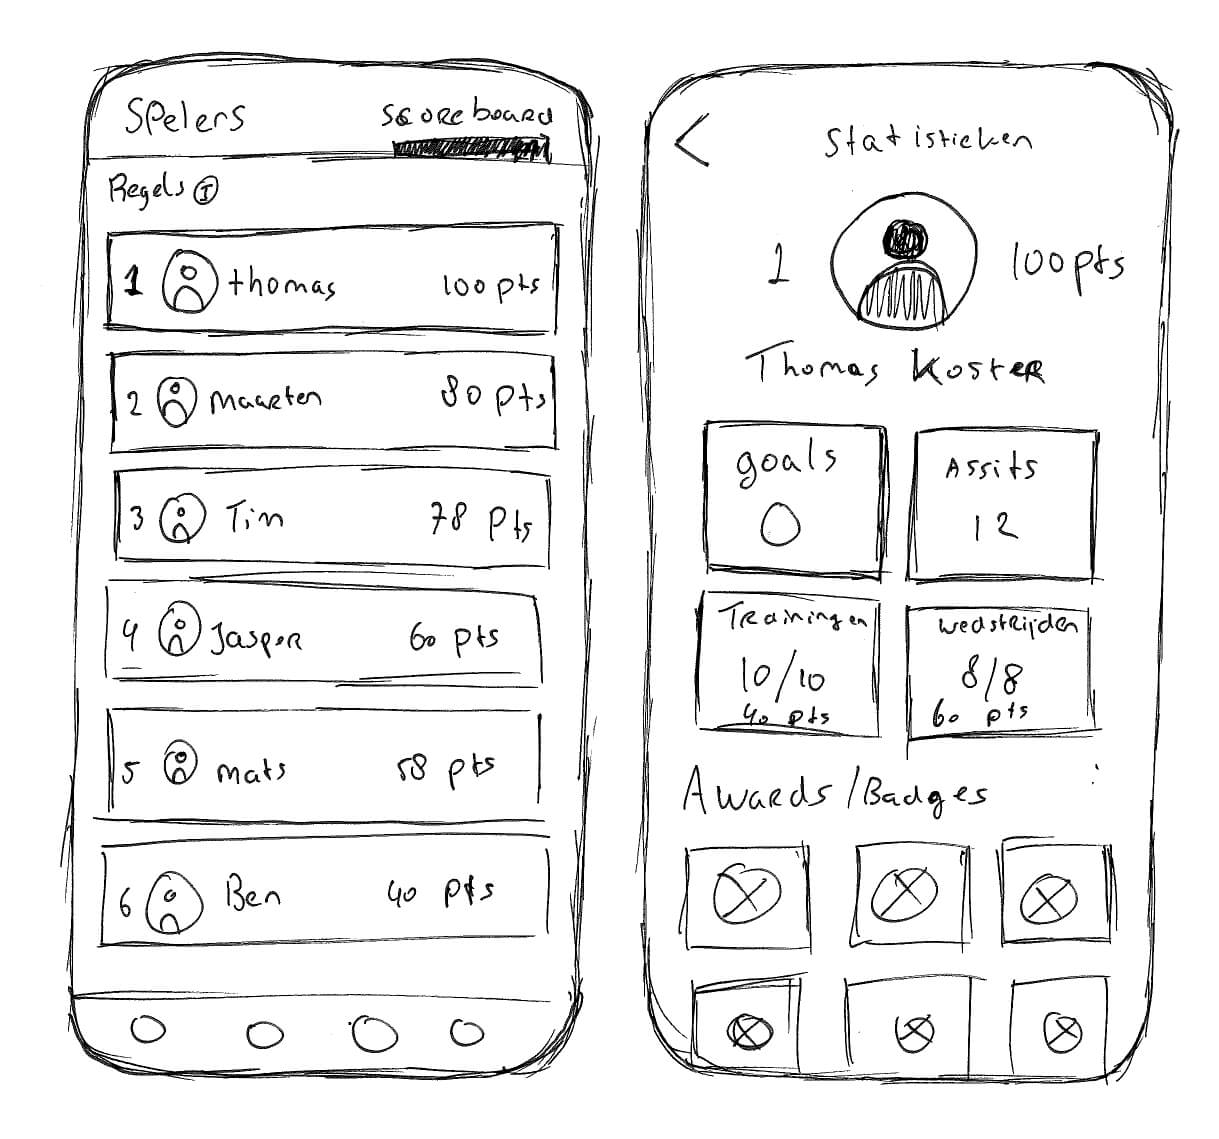 Spelers Scoreboard
Regels I
1 thomas 100 pts
2 maarten 80 pts
3 Tim 78 pts
4 Jasper 60 pts
5 mats 58 pts
6 Ben 40 pts
< Statistieken
1 100 pts
Thomas Koster
goals
0
Assits
12
Trainingen
10/10
40 pts
wedstrijden
8/8
60 pts
Awards/Badges